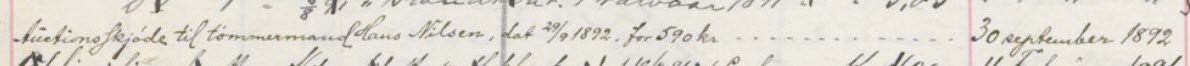 Auctionsskjøde til tømmermand Hans Nilsen, dat 29/9 1892. for 590 kr. .............. 30 september 1892